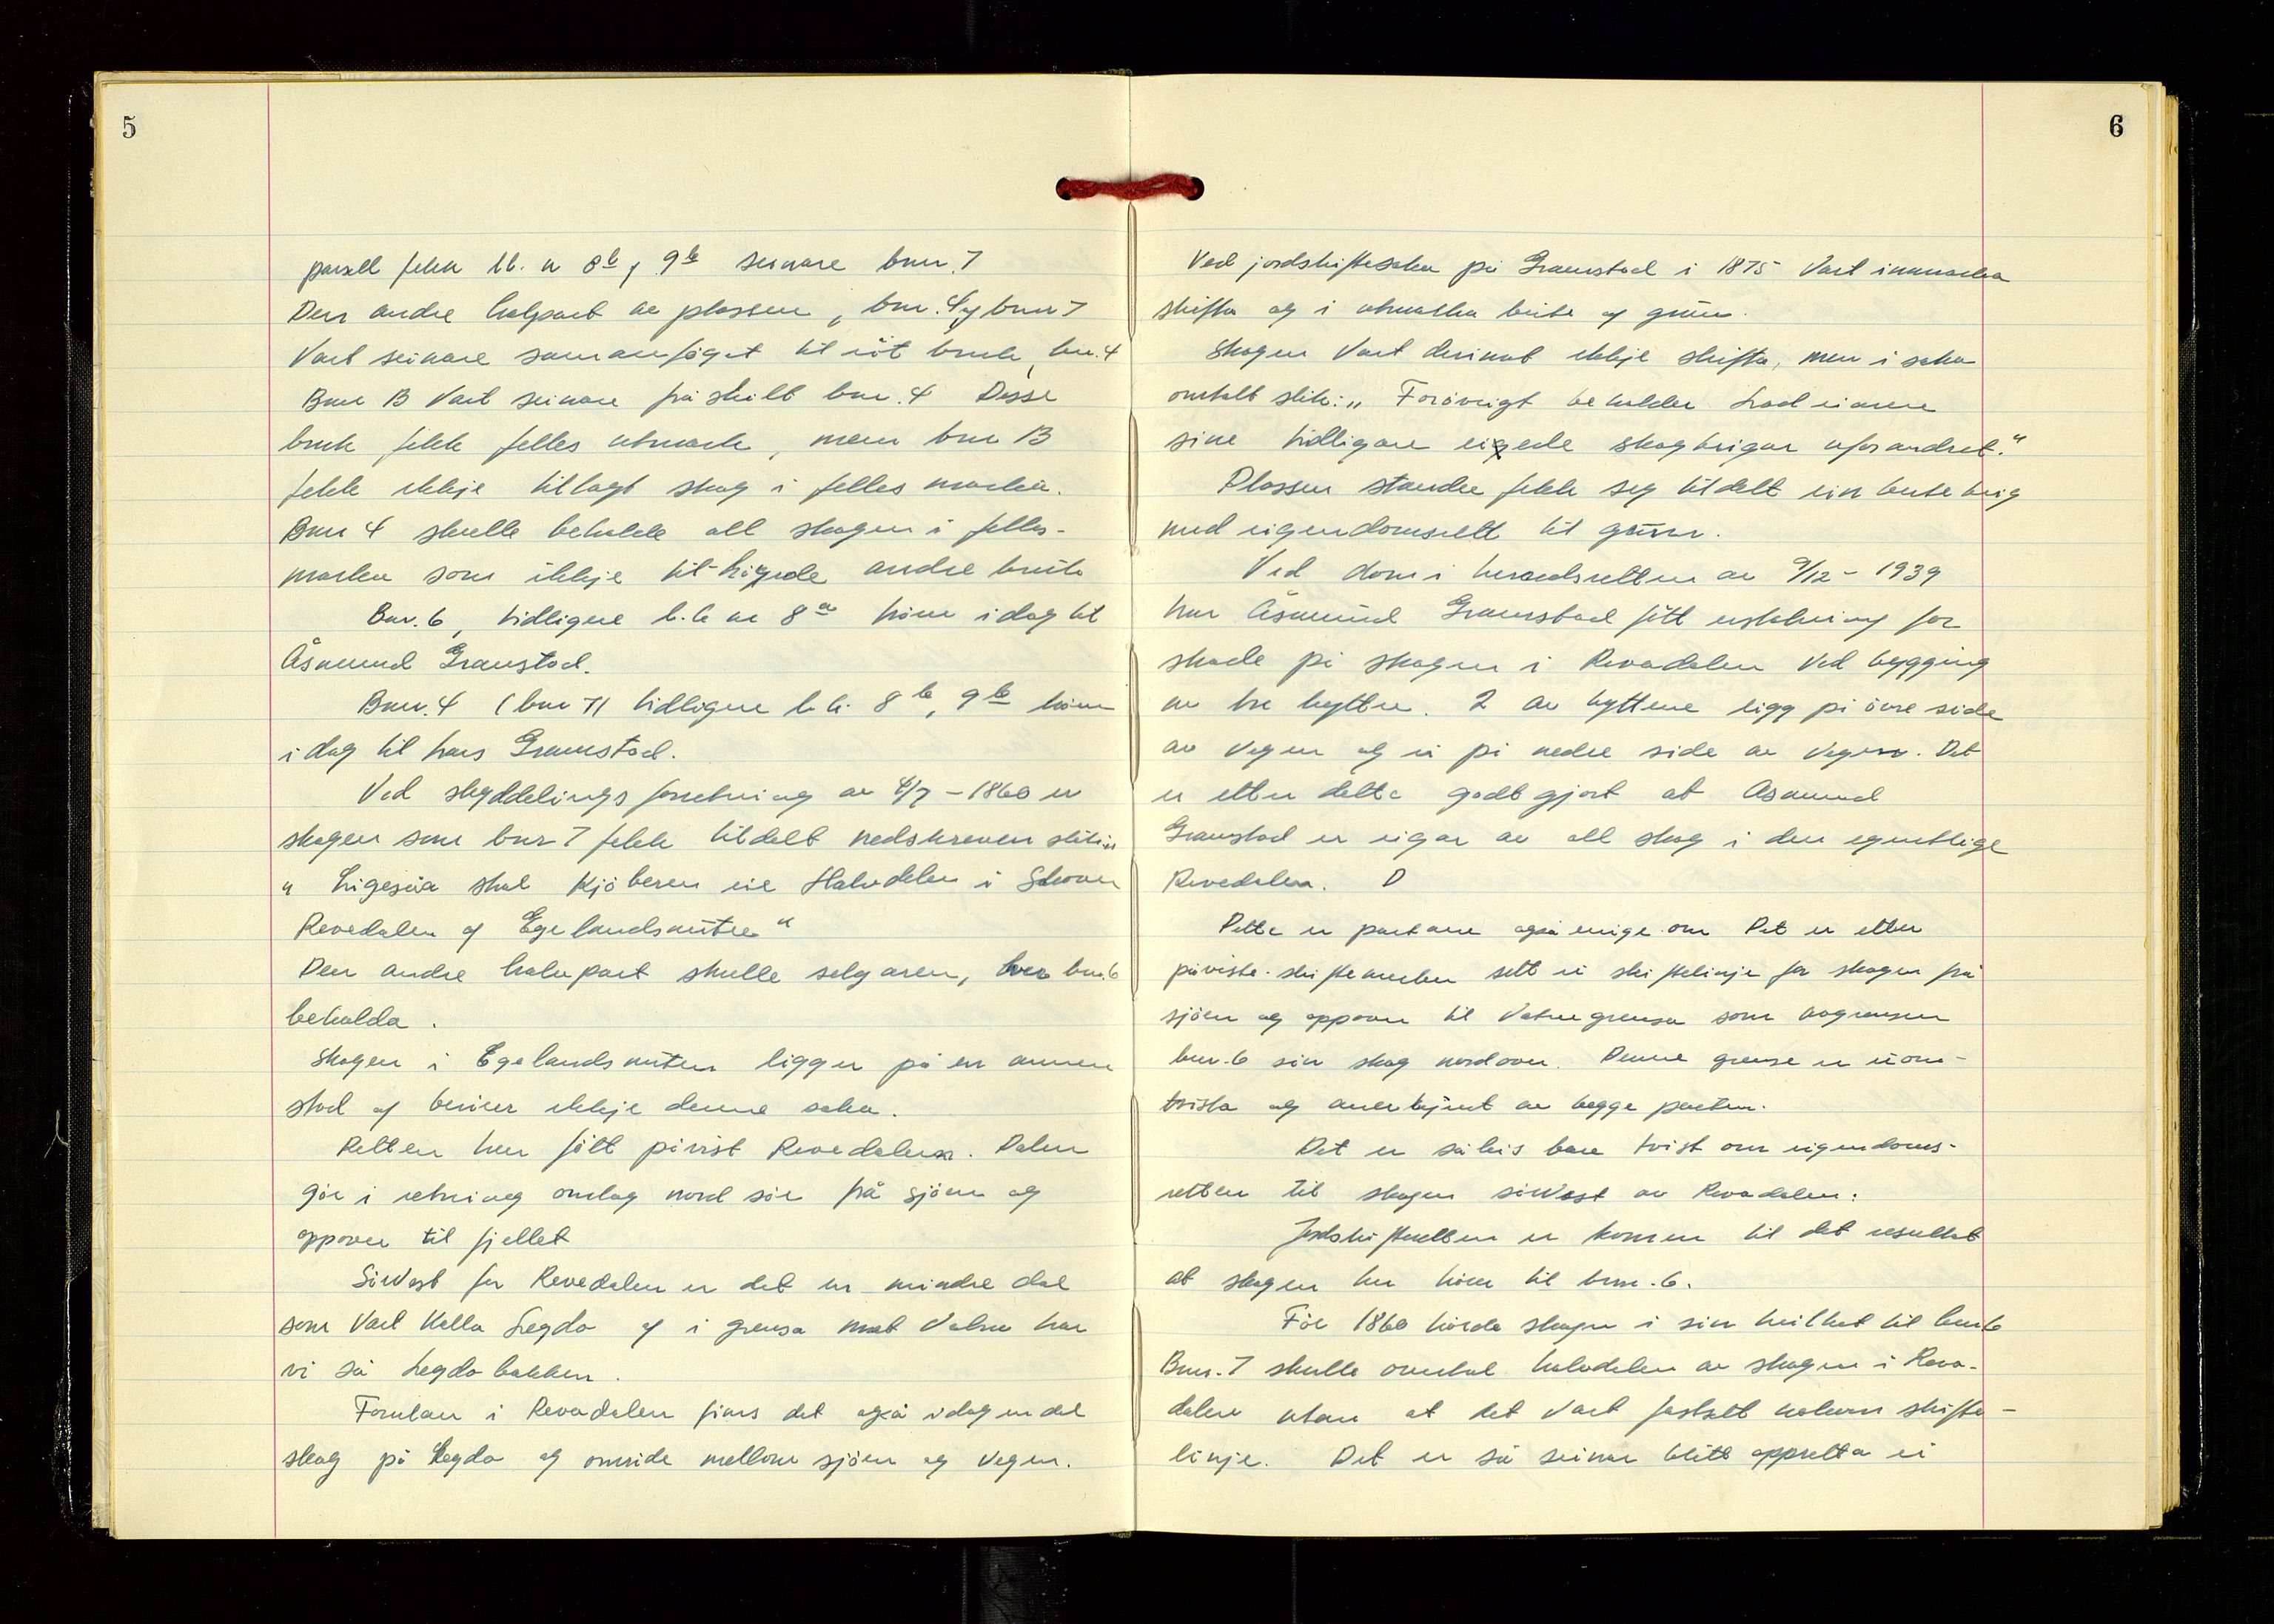 5
parsell fekk lb. nr 8b, 9b seinare bnr. 7
Den andre halpart av plassen, bnr. 4 og bnr 7
Vart seinare samanføyet til eit bruk, bnr. 4
Bnr 13 Vart seinare fråskilt bnr. 4 Desse
bruk fekk felles utmark, men bnr 13
fekk ikkje tillagt skog i felles marka.
Bnr 4 skulle behalde all skogen i felles-
marka som ikkje tilhøyrde andre bruk
Bnr. 6, tidligere l.b nr 8a høire idag til
Åsmund Gramstad.
Bnr. 4 (bnr 7) tidligere l.b. 8b, 9b høire
i dag til Lars Gramstad.
Ved skylddelings forretning av 4/7 - 1860 er
skogen som bnr 7 fekk tildelt nedskreven slik:
" Ligesåa skal kjøberen eie Halvdelen i Skoven
Revedalen og Egelandsnuten "
Den andre halvpart skulle selgaren, bnr. 6
behalda.
Skogen i Egelandsnuten ligger på en annen
stad og berører ikkje denne saka.
Retten har fått påvist Revedalen. Dalen
går i retning omlag nord sør frå sjøen og
oppover til fjellet
Sørvest for Revedalen er det en mindre dal
som Vart kalla Legda og i grensa mot Vatne har
vi så Legdabakken.
Forutan i Revedalen fins det også idag en del
skog på Legda og område mellom sjøen og vegen.
6
Ved jordskiftesaka på Gramstad i 1875 Vart innmarka
skifta og i utmarka beite og grunn.
Skogen Vart derimot ikkje skifta, men i saka
omtalt slik: " Forøvrigt beholder Lodeierne
sine tidligere eigede skogteigar uforandret."
Plassen Stranda fekk seg tildelt ein beiteteig
med eigendomsrett til grunn.
Ved dom i herredsretten av 9/12 - 1939
har Åsmund Gramstad fått erstatning for
skade på skogen i Revadalen ved bygging
av tre hytter. 2 av hyttene ligg på øvre side
av vegen og ei på nedre side av vegen. Det
er etter dette godtgjort at Åsmund
Gramstad er eigar av all skog i den egentlige
Revedalen. D
Dette er partane også enige om Det er etter
påviste skiftemerker sett ei skiftelinje for skogen frå
sjøen og oppover til Vatnegrensa som avgrenser
bnr. 6 sin skog nordover. Denne grense er uom-
tvista og anerkjent av begge parter.
Det er såleis bare tvist om eigendoms-
retten til skogen sørvest av Revadalen.
Jordskifteretten er komen til det resultat
at skogen her hører til bnr. 6.
Før 1860 hørde skogen i sin heilhet til bnr 6
Bnr. 7 skulle overtak halvdelen av skogen i Reve-
dalen utan at det Vart fastsett nokon skifte-
linje. Det er så seinar blitt oppretta ei